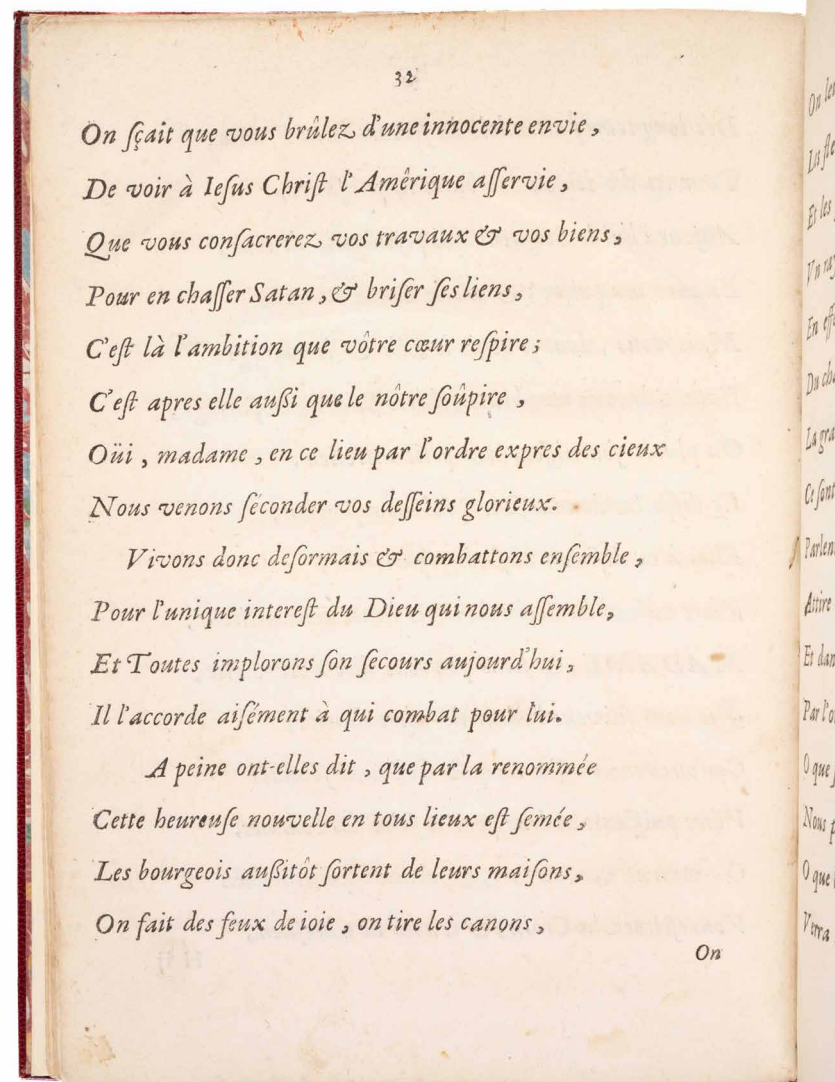 32
On sçait que vous brûlez d'une innocente envie,
De voir à Iesus Christ l'Amêrique asservie,
Que vous consacrerez vos travaux & vos biens,
Pour en chasser Satan, & briser ses liens,
C'est là l'ambition que vôtre cœur respire;
C'est apres elle aussi que le nôtre soûpire,
Oüi, madame, en ce lieu par l'ordre expres des cieux
Nous venons séconder vos desseins glorieux.
Vivons donc desormais & combattons ensemble,
Pour l'unique interest du Dieu qui nous assemble,
Et Toutes implorons son secours aujourd'hui,
Il l'accorde aisément à qui combat pour lui.
A peine ont-elles dit, que par la renommée
Cette heureuse nouvelle en tous lieux est semée,
Les bourgeois aussitôt sortent de leurs maisons,
On fait des feux de ioie, on tire les canons,
On
On
Et les
En eff
Du cha
La gra
Ce sont
Parlen
Attire
Et dan
Par l'o
O que
Nous p
O que
Verra